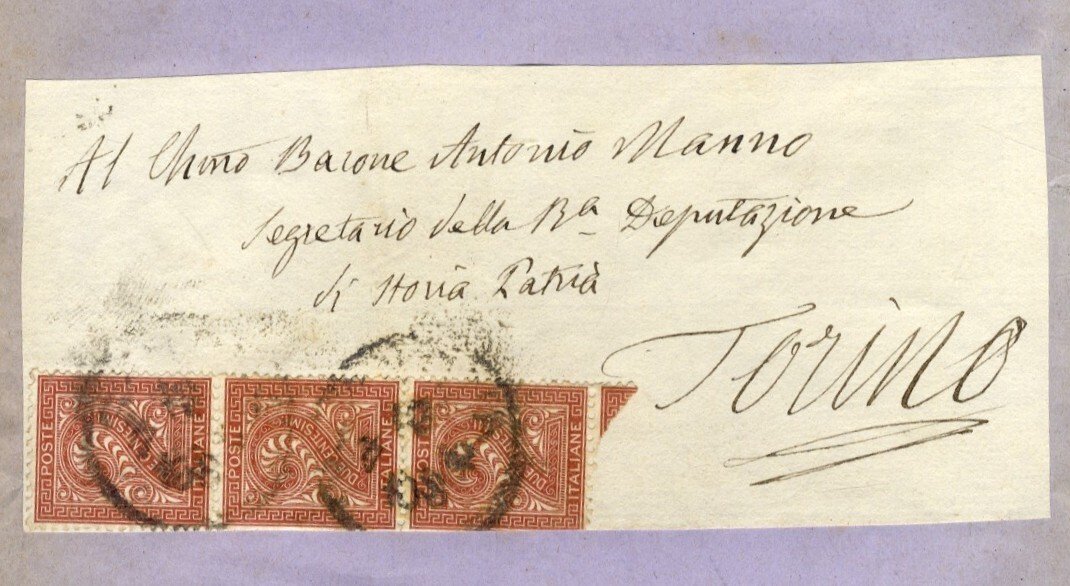 Al Chmo Barone Antonio Manno
Segretario della Ra Deputazione
di Storia Patria
Torino
POSTE DUE CENTESIMI ITALIANE
POSTE DUE CENTESIMI ITALIANE
POSTE DUE CENTESIMI ITALIANE